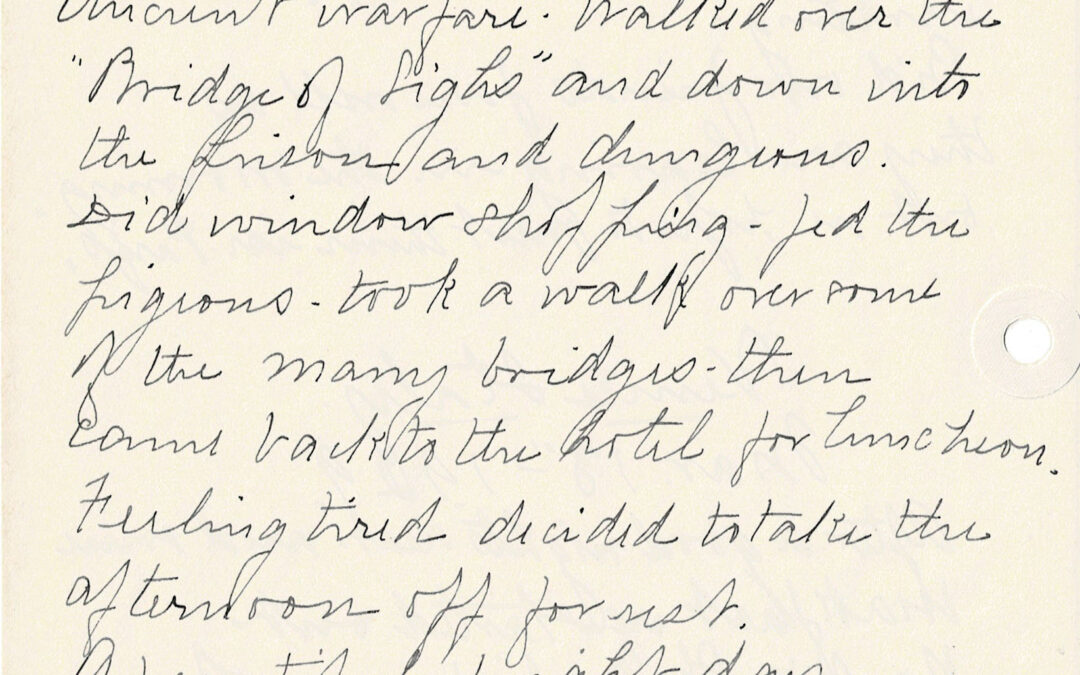 ancient warfare. Walked over the
"Bridge of Sighs" and down into
the prison and dungeons
Did window shopping - fed the
pigeons - took a walk over some
of the many bridges - then
came back to the hotel for luncheon.
Feeling tired decided to take the
afternoon off for rest.